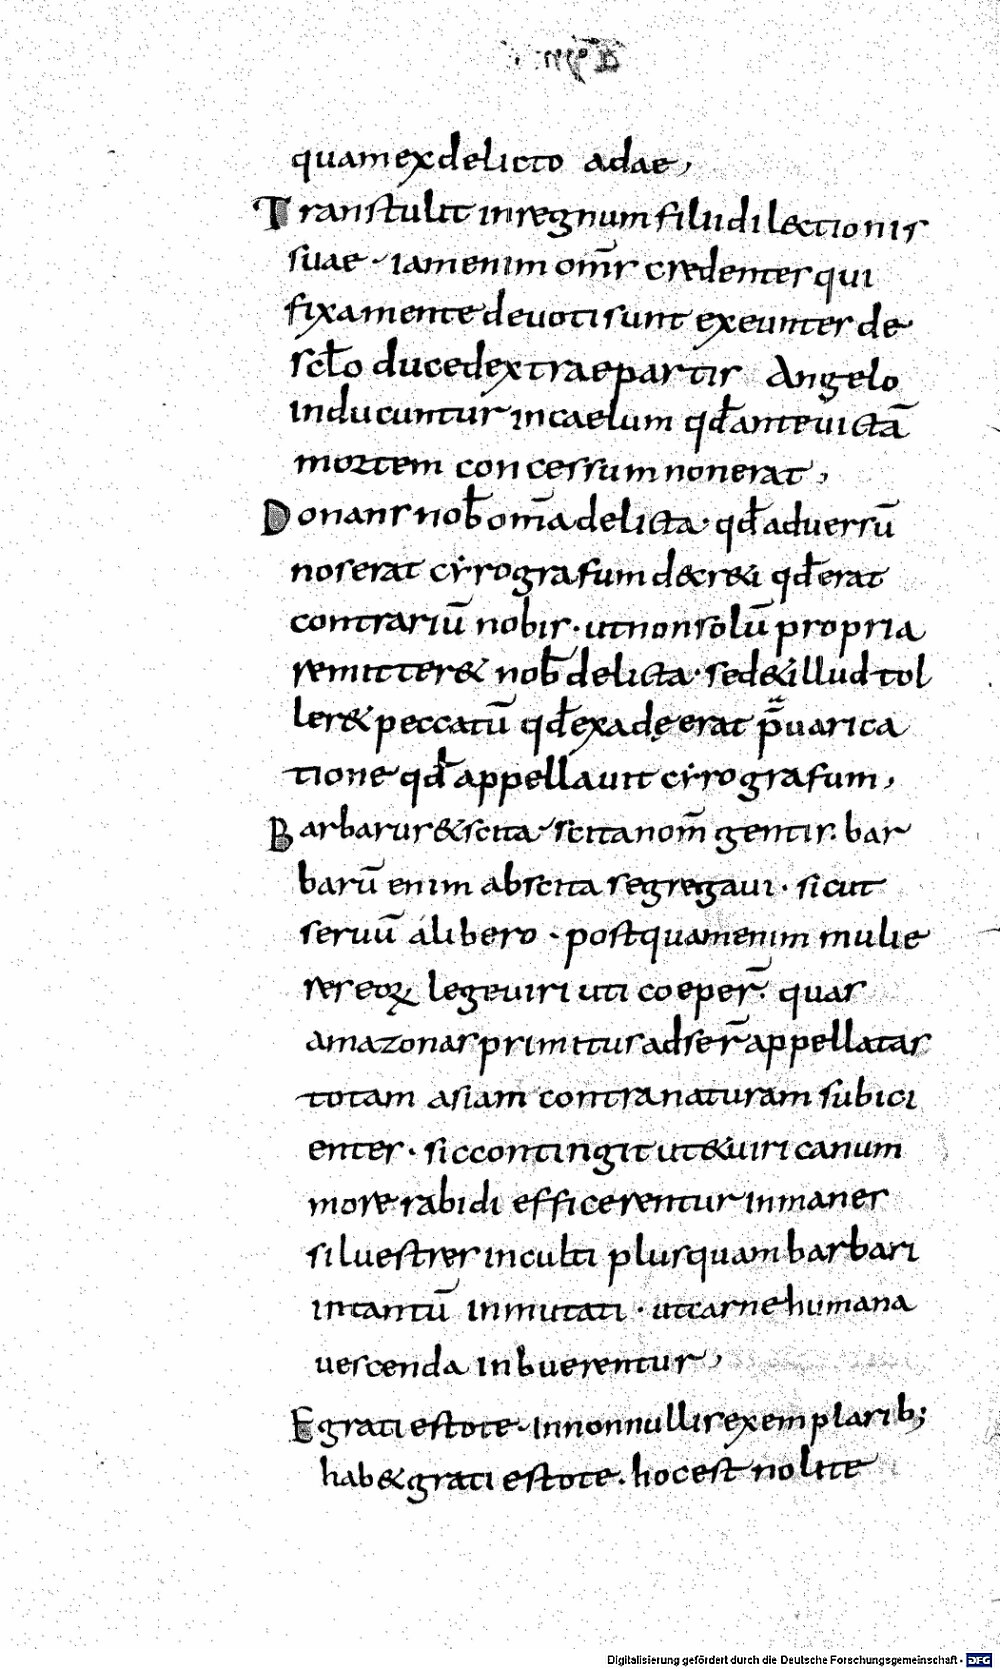 quam ex delicto adae,
Transtulit in regnum filii dilectionis
suae · iam enim om̄s credentes qui
fixa mente devoti sunt exeuntes de
sc̄lo duce dextrae partis Angelo
inducuntur in caelum qđ ante victā
mortem concessum non erat,
Donans nob̄ om̄a delicta · qđ adversū
nos erat cẏrografum decr&i qđ erat
contrariū nobis · ut non solū propria
remitter& nob̄ delicta · sed & illud tol
ler& peccatū qđ ex adę erat p̄varica
tione qđ appellavit cẏrografum,
Barbarus & scita · scita nom̄ gentis · bar
barū enim ab scita segregavi · sicut
servū á libero · postquam enim mulie
res eoꝝ lege viri uti coeper̄ · quas
amazonas primitus adser̄ appellatas
totam asiam contra naturam subici
entes · sic contingit ut & viri canum
more rabidi efficerentur inmanes
silvestres inculti plusquam barbari
in tantū inmutati · ut carne humana
vescenda inbuerentur,
E grati estote · In nonnullis exemplarib;
hab& grati estote · hoc est nolite
Digitalisierung gefördert durch die Deutsche Forschungsgemeinschaft - DFG